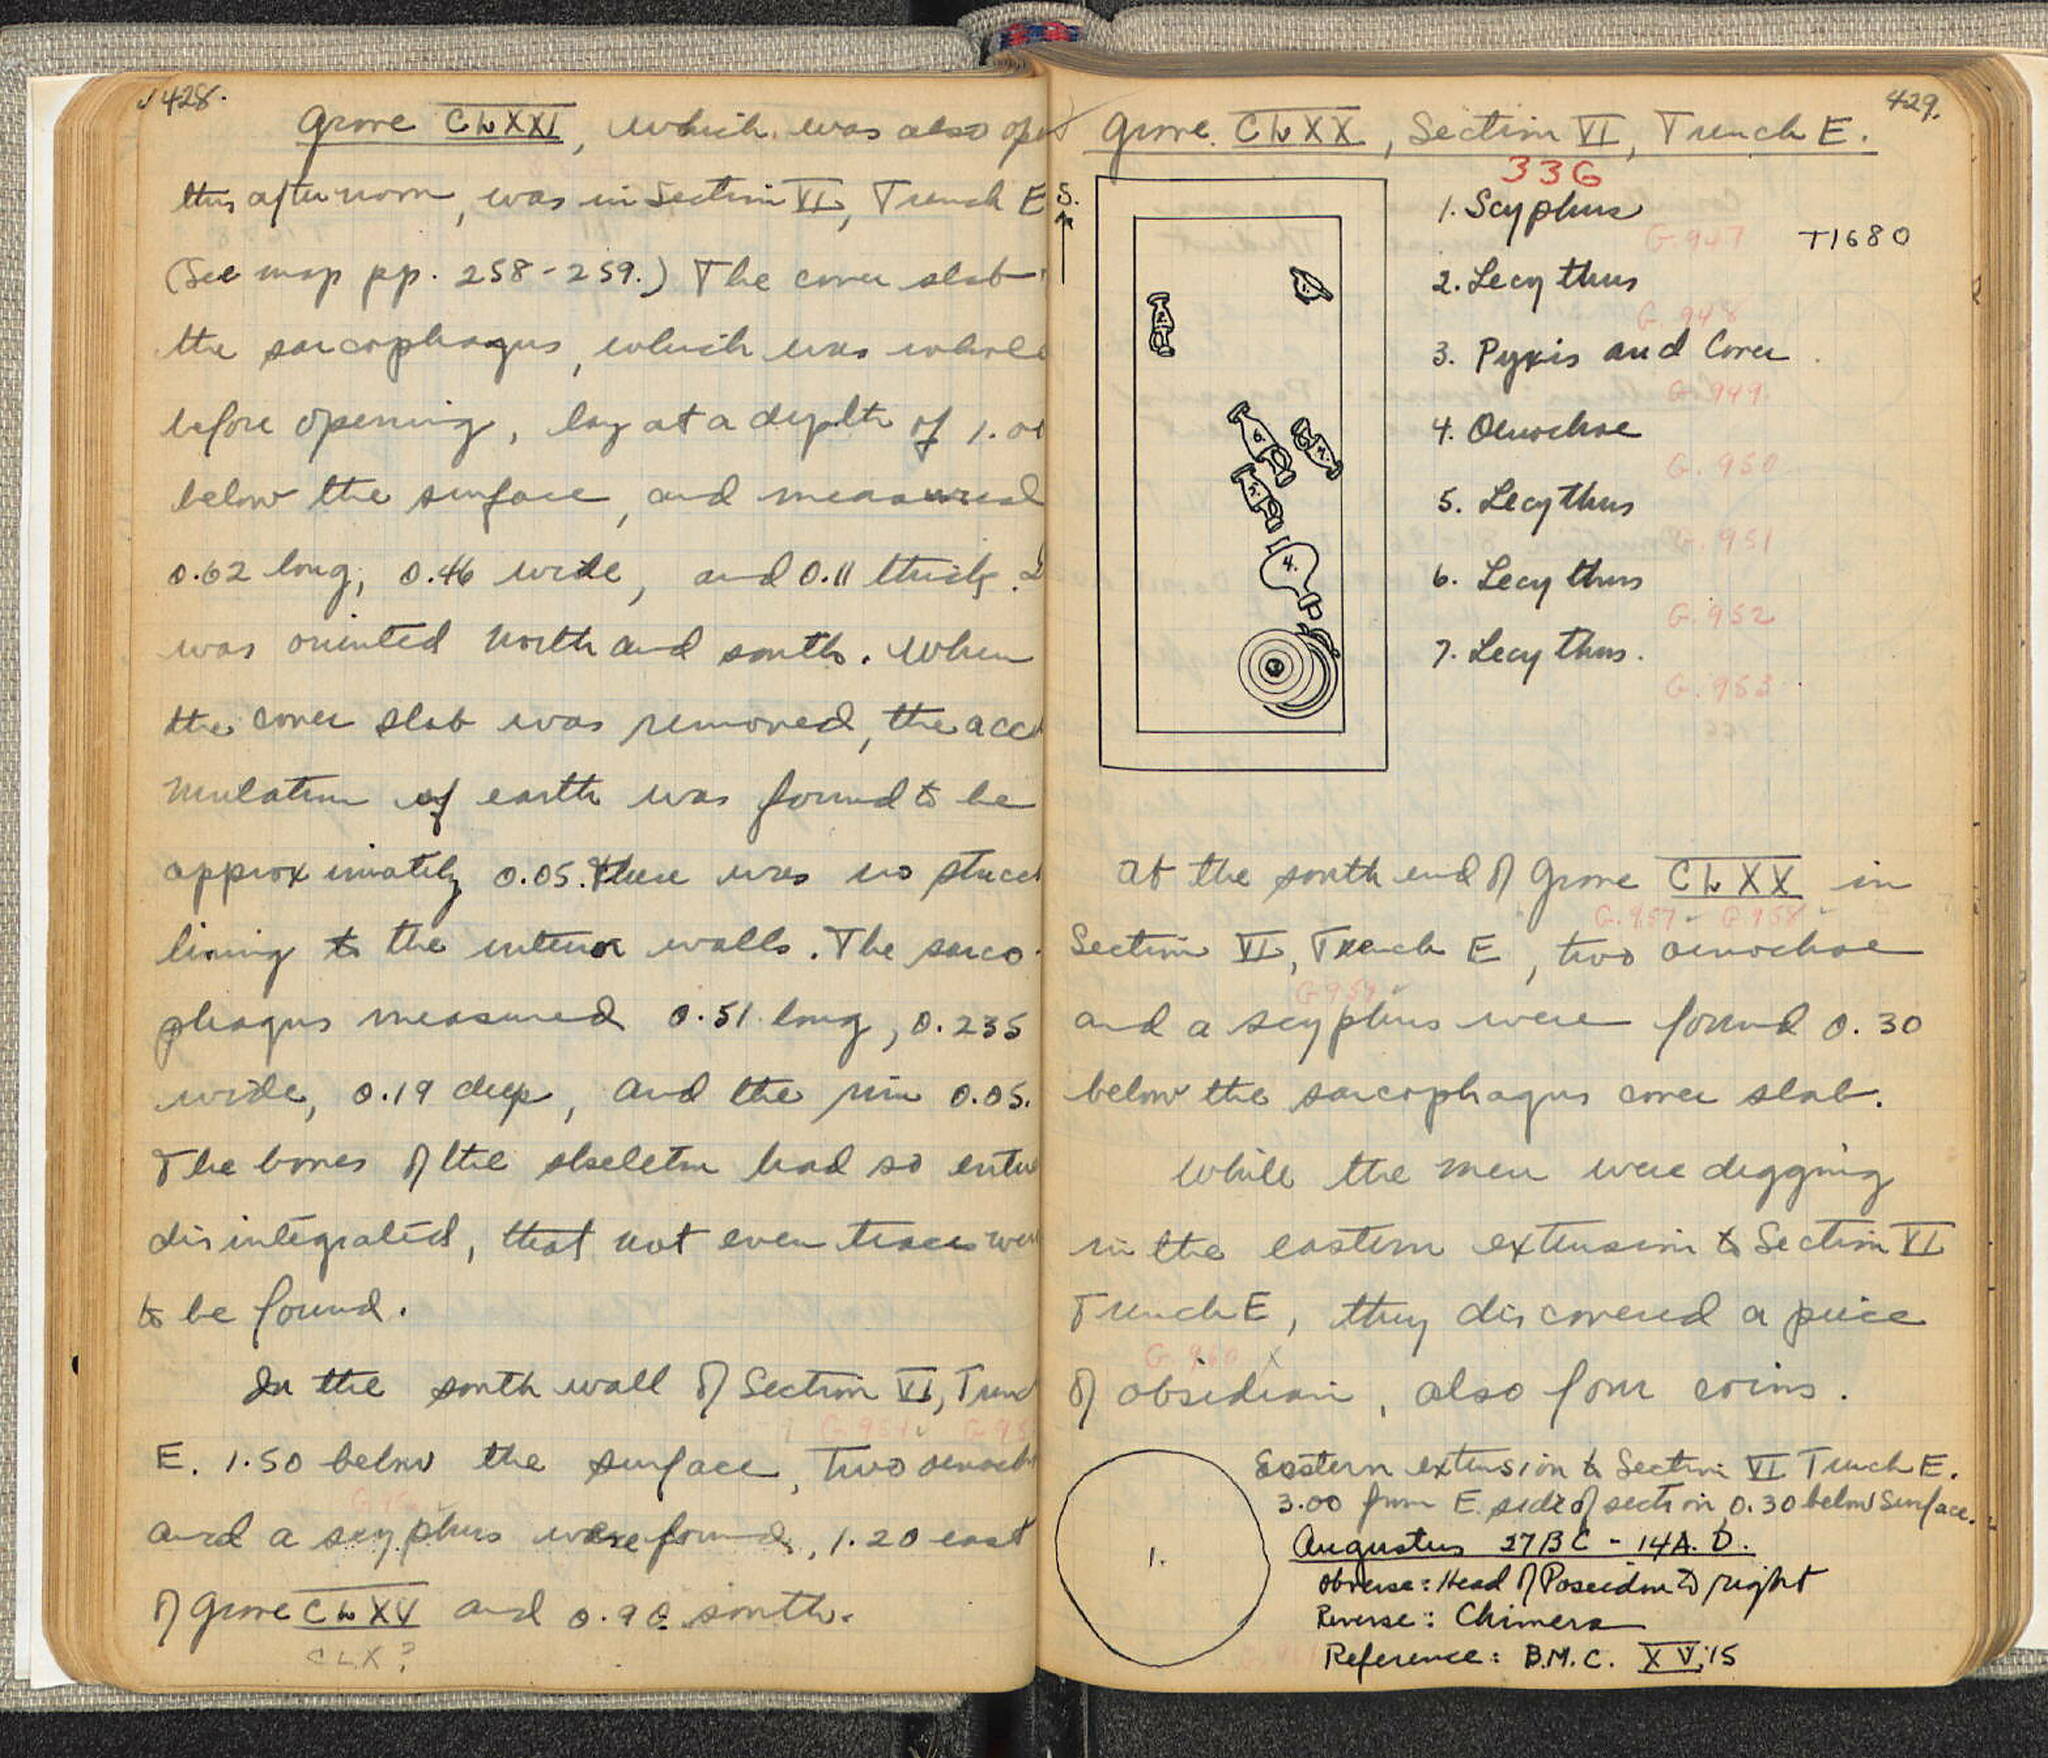 428.
Grave CLXXI, which was also
this afternoon, was in Section VI, Trench E
(See map pp. 258-259.) The cover slab
the sarcophagus, which was whole
before opening, lay at a depth of 1.
below the surface, and measured
0.62 long, 0.46 wide, and 0.11 thick.
was oriented north and south. When
the cover slab was removed, the accu
mulation of earth was found to be
approximately 0.05. There was no
lining to the interior walls. The sarco-
phagus measured 0.51 long, 0.235
wide, 0.19 deep, and the rim 0.05.
The bones of the skeleton had so
disintegrated, that not even traces
to be found.
In the south wall of Section VI,
G 954 G 95
E. 1.50 below the surface, two
and a scyphus were found, 1.20 east
of grave CLXV and 0.90 south.
CLX?
429.
Grave CLXX, Section VI, Trench E.
336
S.
1. Scyphus
G. 947
T1680
2. Lecythus
G. 948
3. Pyxis and Cover
G. 949
4. Oenochoe
G. 950
5. Lecythus
G. 951
6. Lecythus
G. 952
7. Lecythus.
G. 953
2.
6.
5.
4.
At the south end of Grave CLXX in
G. 957 G 958
Section VI, Trench E, two oenochoe
G 959
and a scyphus were found 0.30
below the sarcophagus cover slab.
While the men were digging
in the eastern extension to Section VI
Trench E, they discovered a piece
G. 960 X
of obsidian, also four coins.
1.
Eastern extension to Section VI Trench E.
3.00 from E. side of section, 0.30 below surface.
Augustus 27 B C - 14 A. D.
Obverse: Head of Poseidon to right
Reverse: Chimera
Reference: B.M.C. XV, 15